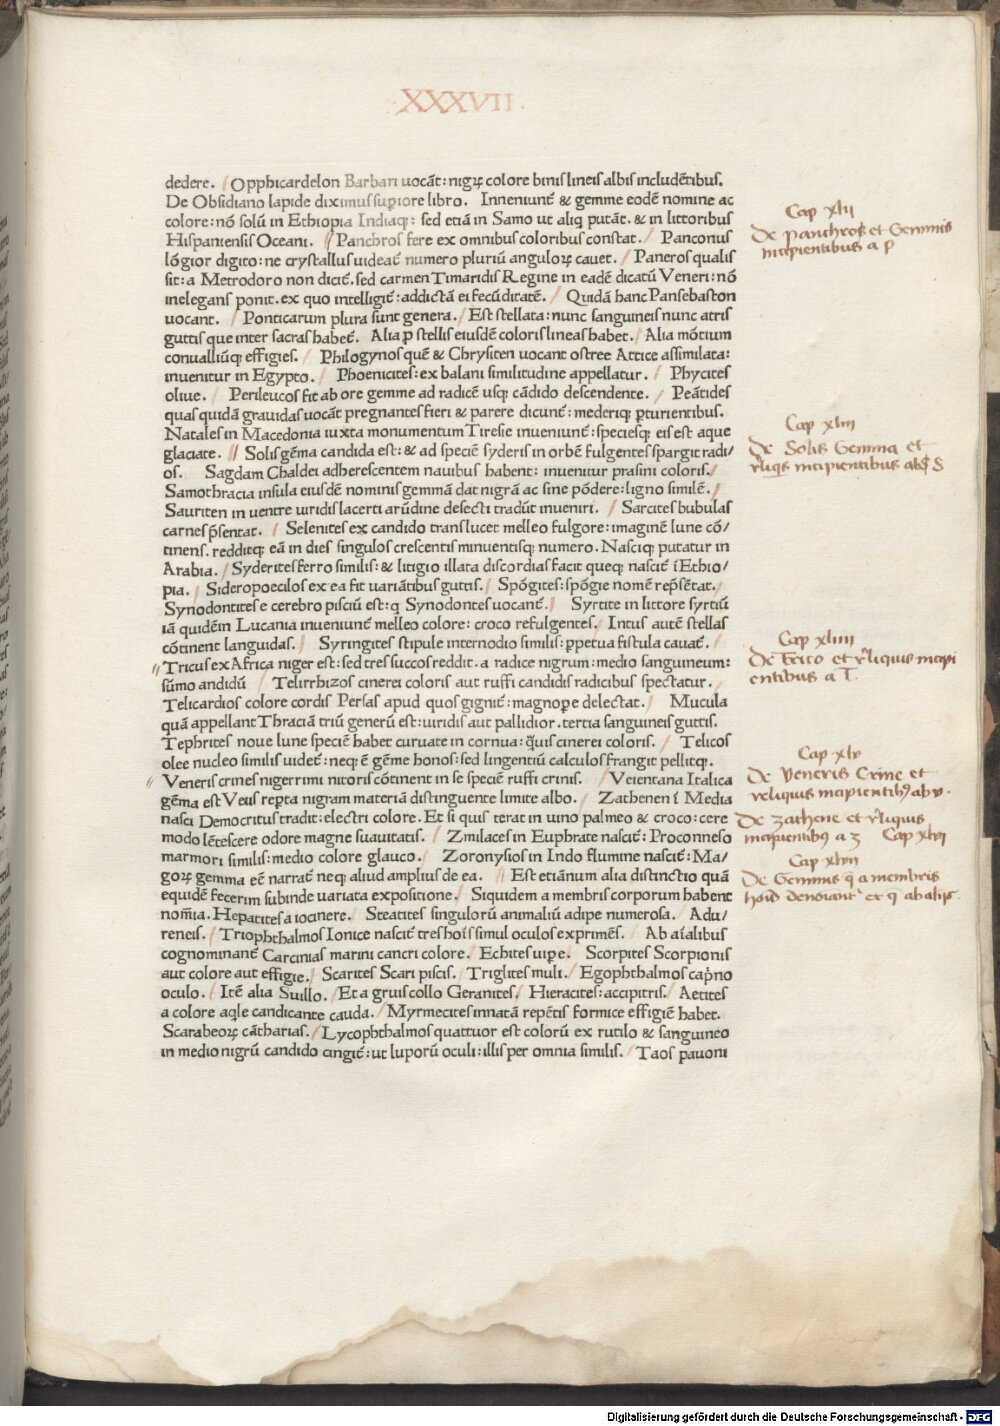 XXXVII.
dedere. Opphicardelon Barbari uocāt: nigrꝝ colore binis lineis albis includētibus.
De Obsidiano lapide diximus superiore libro. Inueniunt̄ & gemme eodē nomine ac
colore: nō solū in Ethiopia Indiaqꝫ: sed etiā in Samo ut aliqͥ putāt. & in littoribus
Hispaniensis Oceani. Panchros fere ex omnibus coloribus constat. Panconus
lōgior digito: ne crystallus uideat̄ numero pluriū angulorꝝ cauet. Paneros qualis
sit: a Metrodoro non dicit̄. sed carmen Timaridis Regine in eadē dicatū Veneri: nō
inelegans ponit. ex quo intelligit̄: addictā ei fecūditatē. Quidā hanc Pansebaston
uocant. Ponticarum plura sunt genera. Est stellata: nunc sanguineis nunc atris
guttis que inter sacras habet̄. Alia ꝓ stellis eiusdē coloris lineas habet. Alia mōtium
conualliūqꝫ effigies. Philogynos quē & Chrysiten uocant ostree Attice assimilata:
inuenitur in Egypto. Phoenicites: ex balani similitudine appellatur. Phycites
oliue. Perileucos fit ab ore gemme ad radicē usqꝫ cādido descendente. Peātides
quas quidā grauidas uocāt pregnantes fieri & parere dicunt̄: mederiqꝫ ꝑturientibus.
Natales in Macedonia iuxta monumentum Tiresie inueniunt̄: speciesqꝫ eis est aque
glaciate. Solis gēma candida est: & ad speciē syderis in orbē fulgentes spargit radi/
os. Sagdam Chaldei adherescentem nauibus habent: inuenitur prasini coloris.
Samothracia insula eiusdē nominis gemmā dat nigrā ac sine pōdere: ligno similē.
Sauriten in uentre uiridis lacerti arūdine desecti tradūt inueniri. Sarcites bubulas
carnes p̄sentat. Selenites ex candido translucet melleo fulgore: imaginē lune cō/
tinens. redditqꝫ eā in dies singulos crescentis minuentisqꝫ numero. Nasciqꝫ putatur in
Arabia. Syderites ferro similis: & litigio illata discordias facit queqꝫ nascit̄ ī Ethio/
pia. Sideropoecilos ex ea fit variātibus guttis. Spōgites: spōgie nomē rep̄sētat.
Synodontites e cerebro pisciū est: q Synodontes uocant̄. Syrtite in littore syrtiū
iā quidēin Lucania inueniunt̄ melleo colore: croco refulgentes. Intus autē stellas
cōtinent languidas. Syringites stipule internodio similis: ꝑpetua fistula cauat̄.
Tricus ex Africa niger est: sed tres succos reddit. a radice nigrum: medio sanguineum:
sūmo andidū Telirrhizos cinerei coloris aut ruffi candidis radicibus spectatur.
Telicardios colore cordis Persas apud quos gignit̄: magnoꝑe delectat. Mucula
quā appellant Thraciā triū generū est: uiridis aut pallidior. tertia sanguineis guttis.
Tephrites noue lune speciē habet curuate in cornua: q̄uis cinerei coloris. Telicos
olee nucleo similis uidet̄: neqꝫ ē gēme honos: sed lingentiū calculos frangit pellitqꝫ.
Veneris crines nigerrimi nitoris cōtinent in se speciē ruffi crinis. Veientana Italica
gēma est Veiis repta nigram materiā distinguente limite albo. Zathenen ī Media
nasci Democritus tradit: electri colore. Et si quis terat in uino palmeo & croco: cere
modo lētescere odore magne suauitatis. Zmilaces in Euphrate nascit̄: Proconneso
marmori similis: medio colore glauco. Zoronysios in Indo flumine nascit̄: Ma/
gorꝝ gemma eē narrat̄ neqꝫ aliud amplius de ea. Est etiānum alia distinctio quā
equidē fecerim subinde uariata expositione. Siquidem a membris corporum habent
noīa. Hepatites a iocinere. Steatites singulorū animaliū adipe numerosa. Adu/
reneis. Triophthalmos Ionice nascit̄ tres hoīs simul oculos exprimēs. Ab aīalibus
cognominant̄ Carcinias marini cancri colore. Echites uiꝑe. Scorpites Scorpionis
aut colore aut effigie. Scarites Scari piscis. Triglites muli. Egophthalmos cap̄no
oculo. Itē alia Suillo. Et a gruis collo Geranites. Hieracites: accipitris. Aetites
a colore aqͥle candicante cauda. Myrmecites innatā repētis formice effigiē habet.
Scarabeorꝝ cātharias. Lycophthalmos quattuor est colorū ex rutilo & sanguineo
in medio nigrū candido cingit̄: ut luporū oculi: illis per omnia similis. Taos pauoni
Cap xlii
De panthros et Gemmis
incipientibus a p
Cap xliii
De Solis Gemma et
reliqͥs incipientibus ab S
Cap xliiii
De trico et reliquis incipi
entibus a T.
Cap xlv
De veneris Crine et
reliquis incipientibꝰ ab v.
De zathene et reliquis
incipientibꝰ a z Cap xlvi
Cap xlvii
De Gemmis q̄ a membris
hoīs denoīant̄ et q̄ ab aliis.
Digitalisierung gefördert durch die Deutsche Forschungsgemeinschaft - DFG